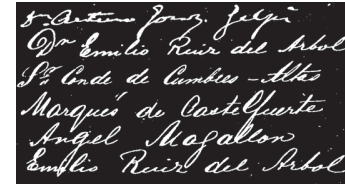 Sr. Arturo
Dn Emilio Ruiz del Arbol
Sr. Conde de Cumbres-Altas
Marqués de Castelfuerte
Angel Magallon
Emilio Ruiz del Arbol